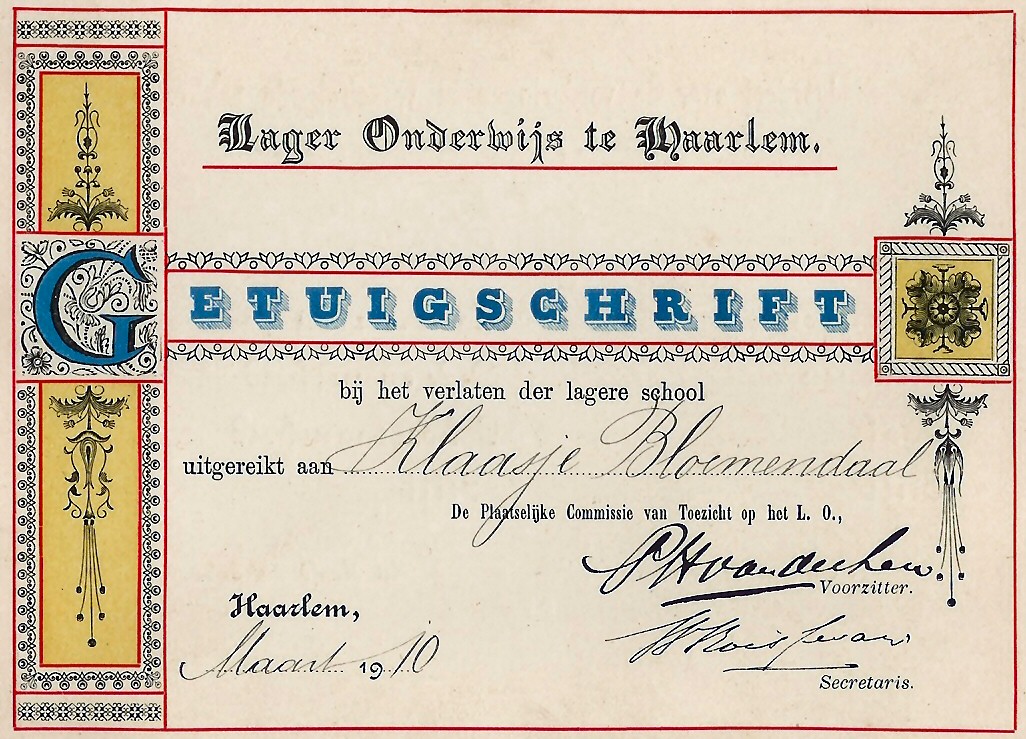 Lager Onderwijs te Haarlem.
GETUIGSCHRIFT
bij het verlaten der lagere school
uitgereikt aan Klaasje Bloemendaal
De Plaatselijke Commissie van Toezicht op het L. O.,
Voorzitter.
Haarlem,
Maart 1910
Secretaris.